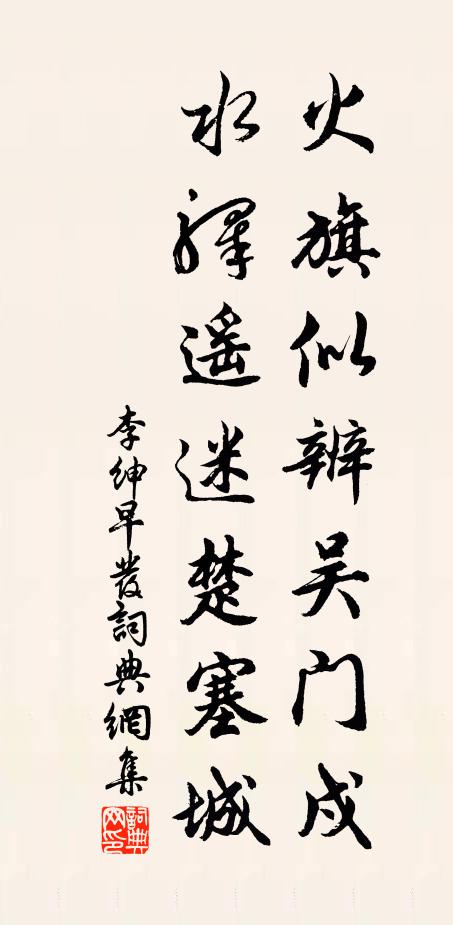 火旗似辨吴门戍
水驛遥迷楚塞城
李紳早發詞典網集
詞典网印